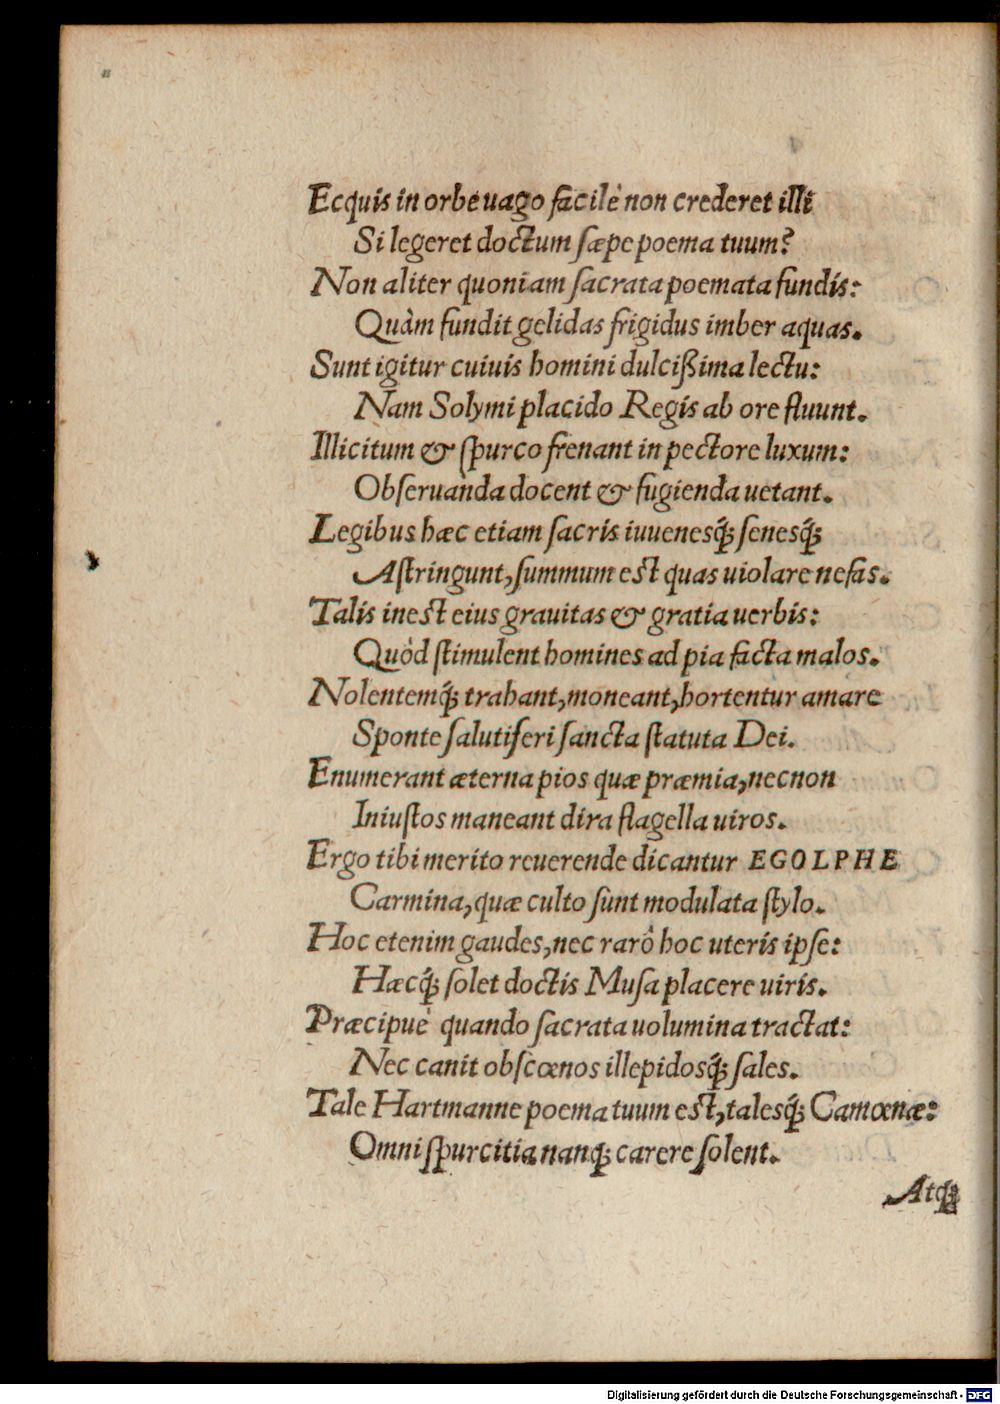 Ecquis in orbe uago facilè non crederet illi
Si legeret doctum sæpe poema tuum?
Non aliter quoniam sacrata poemata fundis:
Quàm fundit gelidas frigidus imber aquas.
Sunt igitur cuiuis homini dulcißima lectu:
Nam Solymi placido Regis ab ore fluunt.
Illicitum & spurco frenant in pectore luxum:
Obseruanda docent & fugienda uetant.
Legibus hæc etiam sacris iuuenesq́; senesq́;
Astringunt, summum est quas uiolare nefas.
Talis inest eius grauitas & gratia uerbis:
Quòd stimulent homines ad pia facta malos.
Nolentemq́; trahant, moneant, hortentur amare
Sponte salutiferi sancta statuta Dei.
Enumerant æterna pios quæ præmia, necnon
Iniustos maneant dira flagella uiros.
Ergo tibi merito reuerende dicantur EGOLPHE
Carmina, quæ culto sunt modulata stylo.
Hoc etenim gaudes, nec rarò hoc uteris ipse:
Hæcq́; solet doctis Musa placere uiris.
Præcipuè quando sacrata uolumina tractat:
Nec canit obscœnos illepidosq́; sales.
Tale Hartmanne poema tuum est, talesq́; Camœnæ:
Omni spurcitia nanq; carere solent.
Atq;
Digitalisierung gefördert durch die Deutsche Forschungsgemeinschaft - DFG